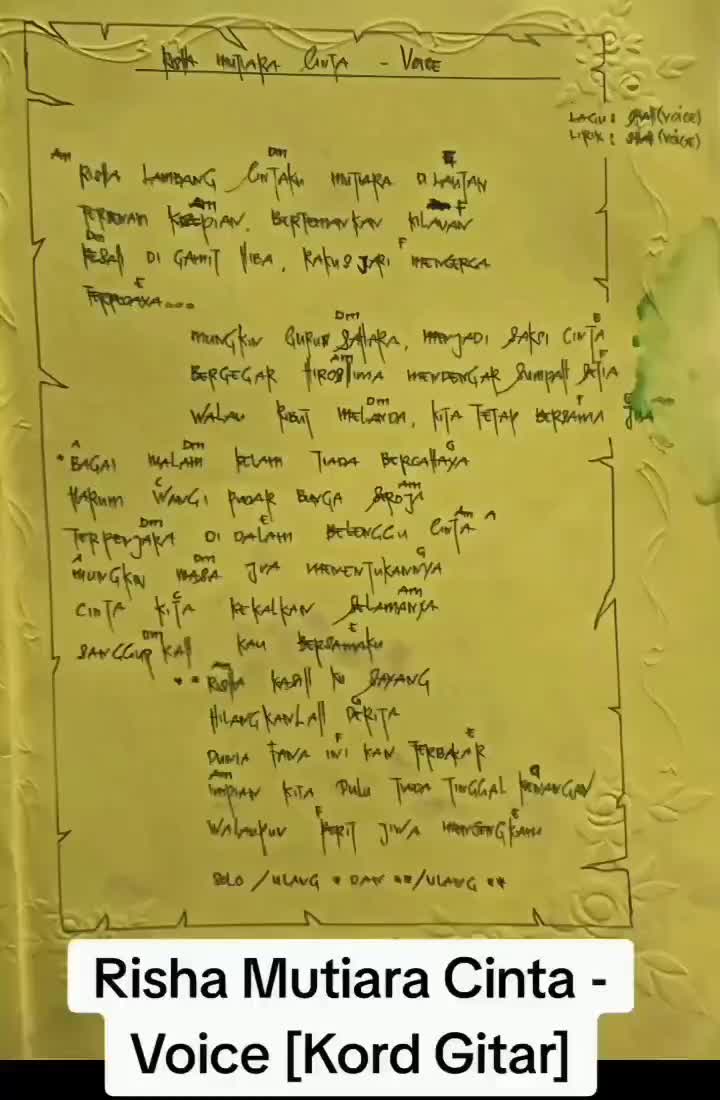 RISHA MUTIARA CINTA - VOICE
LAGU : SHAH (VOICE)
LIRIK : SHAH (VOICE)
Am Dm E
RISHA LAMBANG CINTAKU MUTIARA DI LAUTAN
Am F
TERBENAM BERTEMANKAN KILAUAN
Dm F
KESAH DI GAMIT HIBA, RAKUS JARI
E
TERPEDAYA...
Dm E
MUNGKIN GURUN SAHARA, MENJADI SAKSI CINTA
Am F
BERGEGAR HIROSHIMA MENDENGAR SUMPAH SETIA
Dm F E Am
WALAU RIBUT MELANDA, KITA TETAP BERSAMA JUA
A Dm G
* BAGAI MALAM KELAM TIADA BERCAHAYA
C Am
HARUM WANGI PUDAR BUNGA SAROJA
Dm E Am A
TERPENJARA DI DALAM BELENGGU CINTA
A Dm G
MUNGKIN MASA JUA MENENTUKANNYA
C Am
CINTA KITA KEKALKAN SELAMANYA
Dm E
SANGGUPKAH KAU BERSAMAKU
Am
** RISHA KASIH KU SAYANG
G
HILANGKANLAH DERITA
F E
DUNIA FANA INI KAN TERBAKAR
Am G
IMPIAN KITA DULU TIADA TINGGAL KENANGAN
F E
WALAUPUN PERIT JIWA
SOLO / ULANG * DAN ** / ULANG **
Risha Mutiara Cinta -
Voice [Kord Gitar]